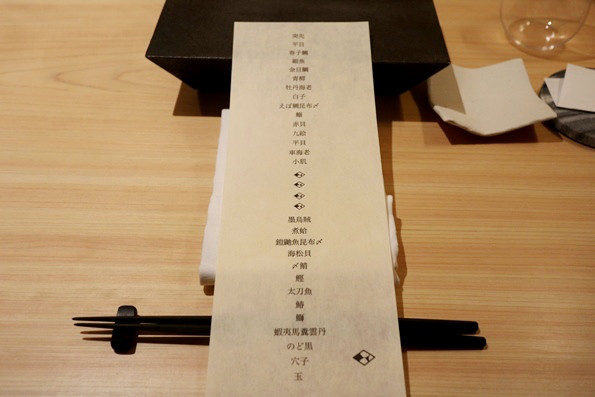 平目
春子鯛
鮑
金目鯛
青柳
牡丹海老
白子
えぼ鯛昆布〆
鰤
赤貝
九絵
平貝
車海老
小肌
墨烏賊
煮蛤
魚昆布〆
海松貝
〆鯖
鰹
太刀魚
鰆
蝦夷馬糞雲丹
のど黒
穴子
玉